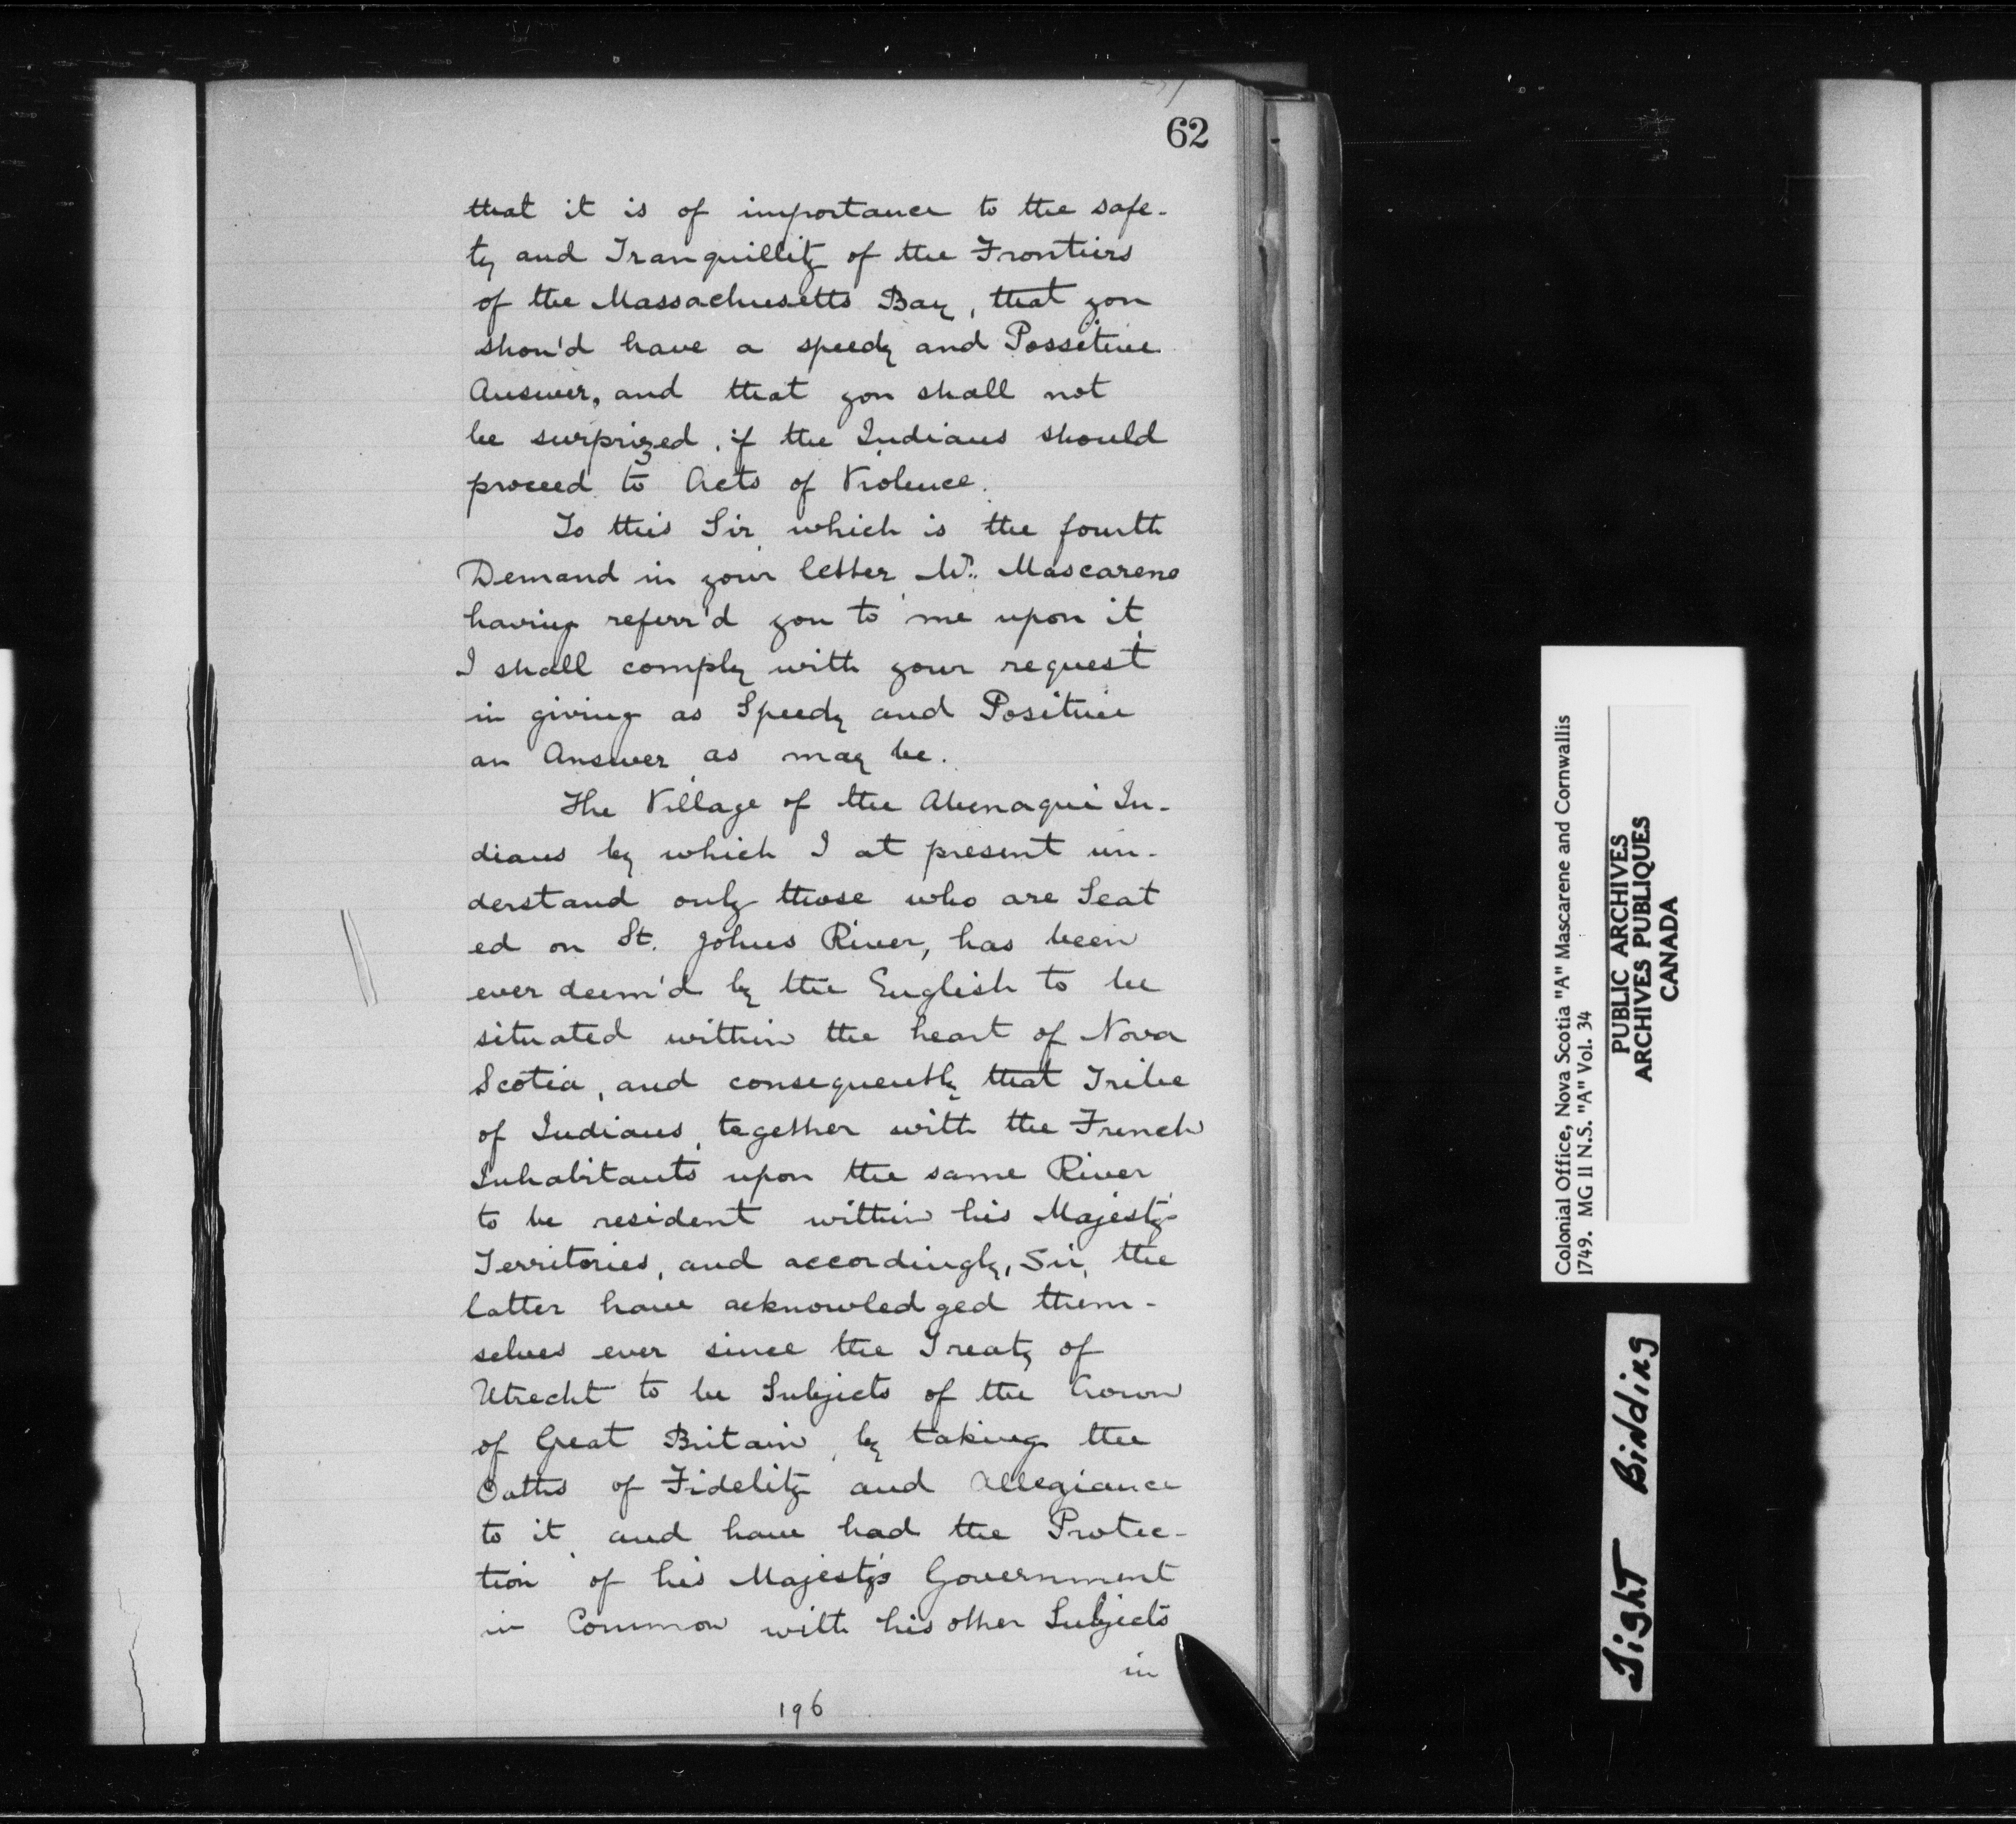 62
that it is of importance to the safe-
ty and Tranquillity of the Frontiers
of the Massachusetts Bay, that you
shou'd have a speedy and Possitive
Answer, and that you shall not
be surprized, if the Indians should
proceed to Acts of Violence.
To this Sir, which is the fourth
Demand in your letter, Mr. Mascarene
having referr'd you to me upon it,
I shall comply with your request
in giving as Speedy and Positive
an Answer as may be.
The Village of the Abenaqui In-
dians by which I at present un-
derstand only those who are Seat
ed on St. Johns River, has been
ever deem'd by the English to be
situated within the heart of Nova
Scotia, and consequently that Tribe
of Indians, together with the French
Inhabitants upon the same River
to be resident within his Majesty's
Territories, and accordingly, Sir, the
latter have acknowledged them-
selves ever since the Treaty of
Utrecht to be Subjects of the Crown
of Great Britain, by taking the
Oaths of Fidelity and Allegiance
to it, and have had the Protec-
tion of his Majesty's Government
in Common with his other Subjects
in
196
Colonial Office, Nova Scotia "A" Mascarene and Cornwallis
1749. MG 11 N.S. "A" Vol. 34
PUBLIC ARCHIVES
ARCHIVES PUBLIQUES
CANADA
Tight Binding